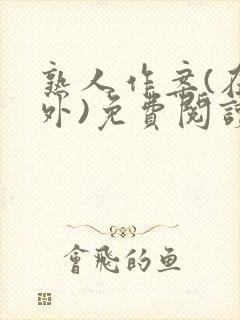 熟人作案(
外)免費閱讀
會飛的鱼